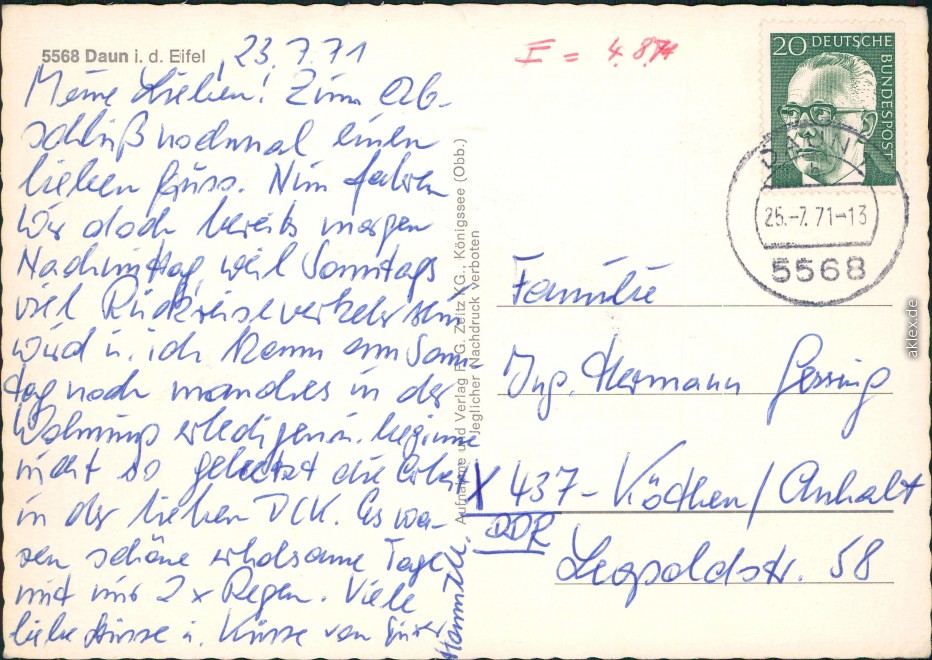 5568 Daun i. d. Eifel
, 23.7.71
Meine Lieben! Zum Ab-
schluß nochmal einen
lieben Gruss. Nun fahren
wir doch bereits morgen
Nachmittag, weil Sonntags
viel Rückreiseverkehr sein
wird u. ich kann am Sonn
tag noch manches in der
Wohnung erledigen u. beginne
nicht so gehetzt die Arbeit
in der lieben DCK. Es wa-
ren schöne erholsame Tage
mit nur 2 x Regen. Viele
liebe Grüsse u. Küsse von Eurer
Aufnahme und Verlag F. G. Zeitz KG., Königssee (Obb.)
Jeglicher Nachdruck verboten
I = 4.8.71
20 DEUTSCHE
BUNDESPOST
DAUN
25.-7.71-13
5568
Familie
Ing. Hermann Gerring
X 437 - Köthen / Anhalt
DDR
Leopoldstr. 58
aklex.de